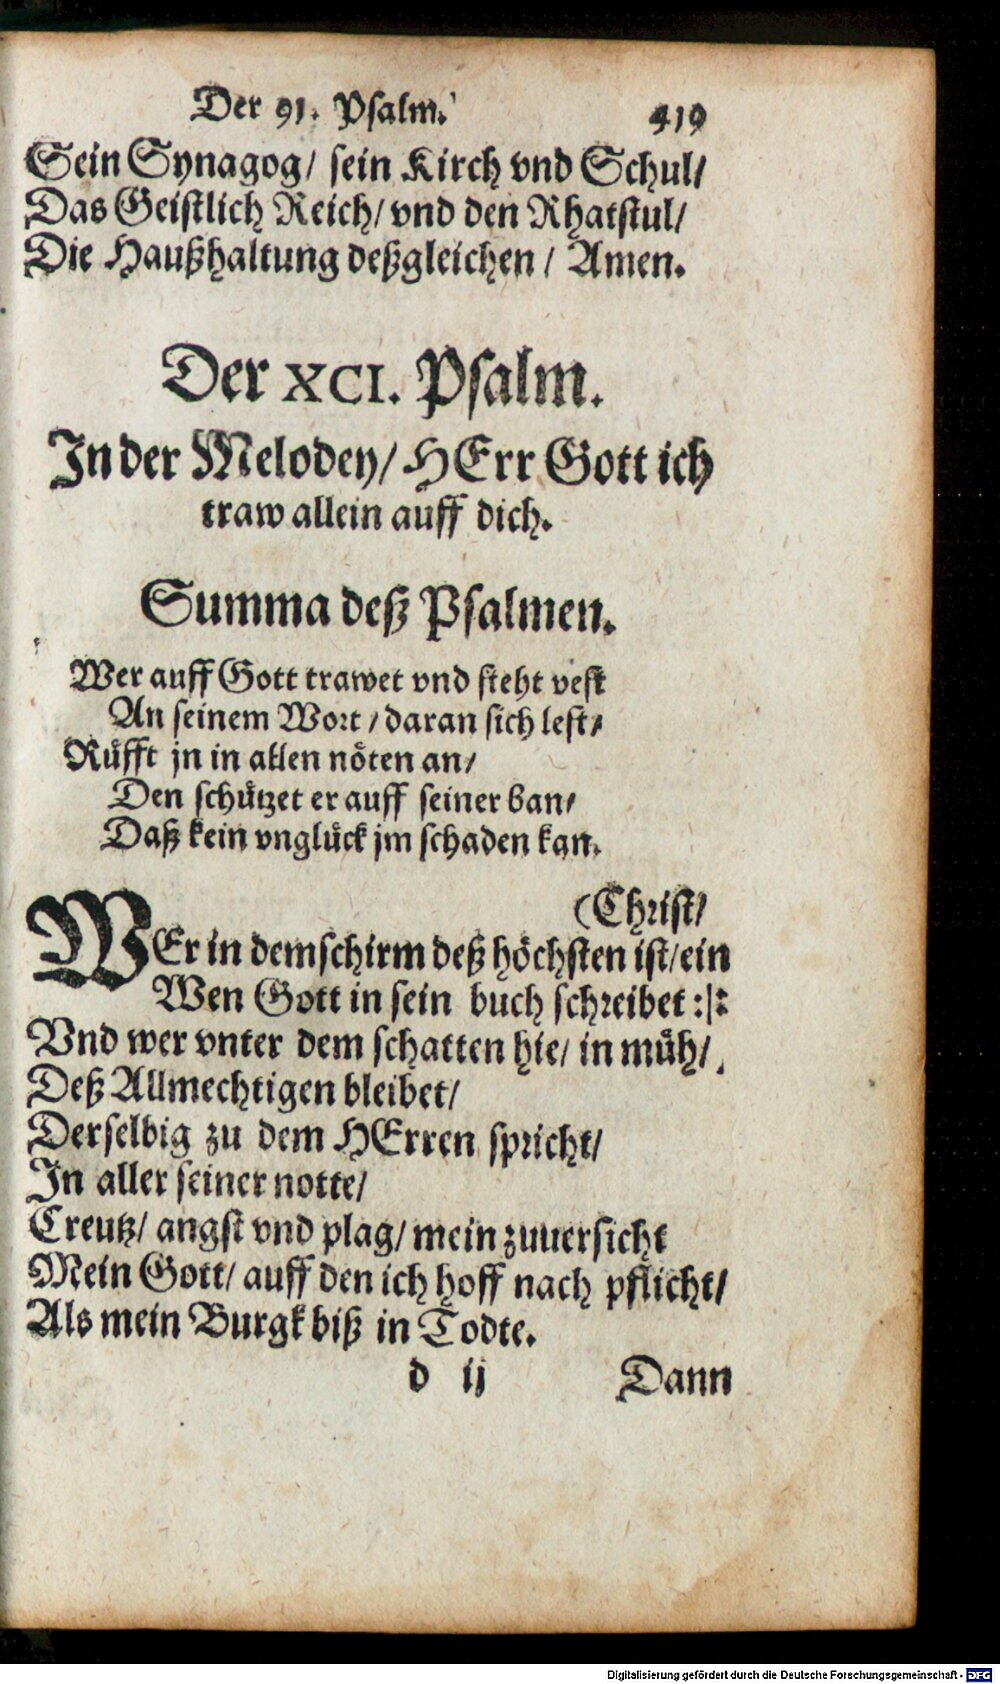 Der 91. Psalm. 419
Sein Synagog/ sein Kirch vnd Schul/
Das Geistlich Reich/ vnd den Rhatstul/
Die Haußhaltung deßgleichen/ Amen.
Der XCI. Psalm.
In der Melodey/ HErr Gott ich
traw allein auff dich.
Summa deß Psalmen.
Wer auff Gott trawet vnd steht vest
An seinem Wort/ daran sich lest/
Rüfft jn in allen nöten an/
Den schützet er auff seiner ban/
Daß kein vnglück jm schaden kan.
(Christ/
WEr in dem schirm deß höchsten ist/ ein
Wen Gott in sein buch schreibet :|:
Vnd wer vnter dem schatten hie/ in müh/
Deß Allmechtigen bleibet/
Derselbig zu dem HErren spricht/
In aller seiner notte/
Creutz/ angst vnd plag/ mein zuuersicht
Mein Gott/ auff den ich hoff nach pflicht/
Als mein Burgk biß in Todte.
d ij Dann
Digitalisierung gefördert durch die Deutsche Forschungsgemeinschaft - DFG